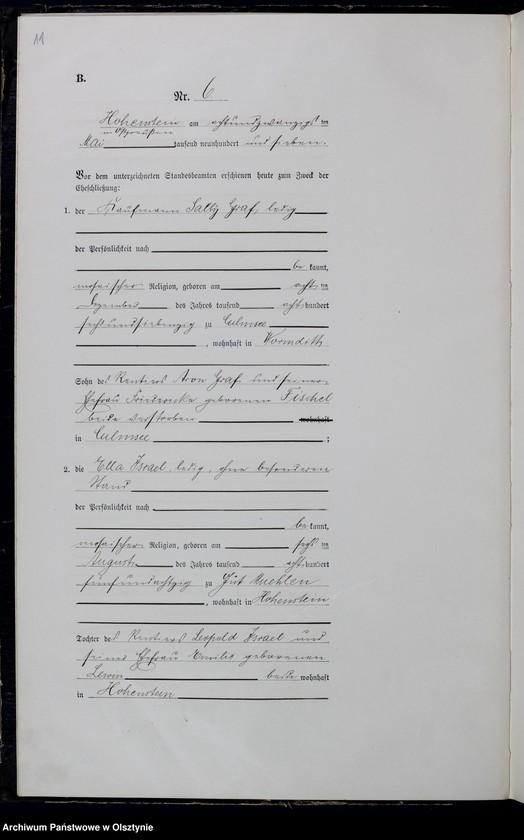 11
B.
Nr. 6
Hohenstein am achtundzwanzigsten
in Ostpreußen
Mai tausend neunhundert und sieben.
Vor dem unterzeichneten Standesbeamten erschienen heute zum Zweck der
Eheschließung:
1. der Kaufmann Sally Graf, ledig
der Persönlichkeit nach
be kannt,
mosaischer Religion, geboren am achten
Dezember des Jahres tausend acht hundert
sechsundsiebenzig zu Culmsee
, wohnhaft in Wormditt
Sohn des Rentiers Aron Graf und seiner
Ehefrau Friederike geborenen Fischel
beide verstorben wohnhaft
in Culmsee ;
2. die Ella Israel, ledig, ohne besonderen
Stand
der Persönlichkeit nach
be kannt,
mosaischer Religion, geboren am sechsten
August des Jahres tausend acht hundert
fünfundachtzig zu Gut Muehlen
, wohnhaft in Hohenstein
Tochter des Rentiers Leopold Israel und
seiner Ehefrau Emilie geborenen
Lewin beide wohnhaft
in Hohenstein
Archiwum Państwowe w Olsztynie